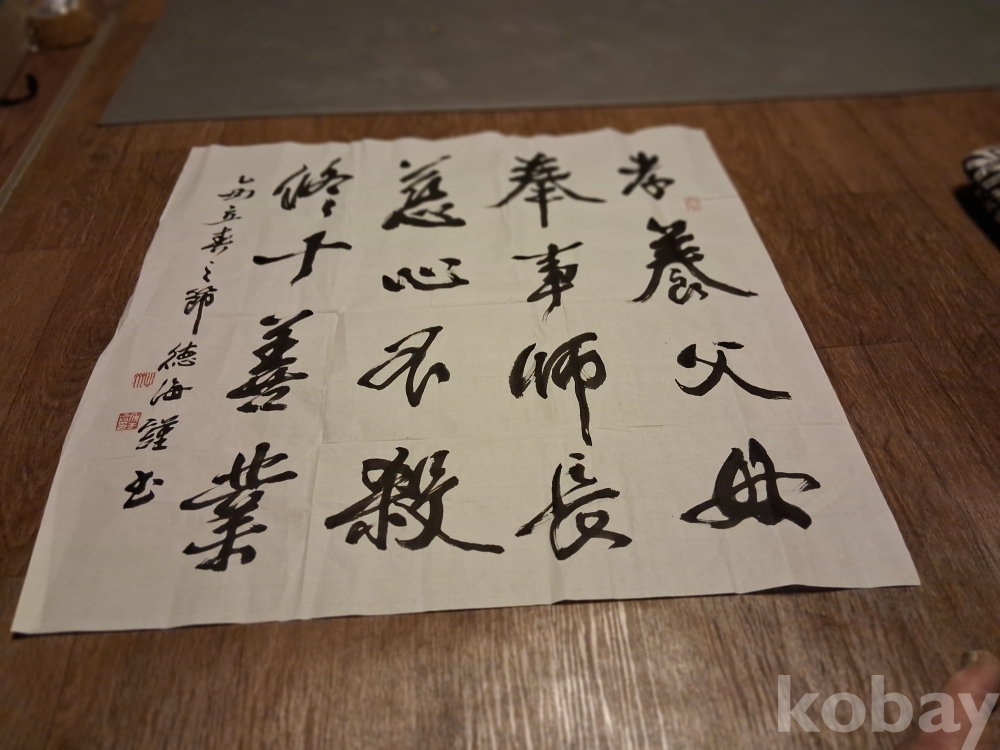 孝養父母
奉事師長
慈心不殺
修十善業
乙丑立春之節 德海謹書
kobay